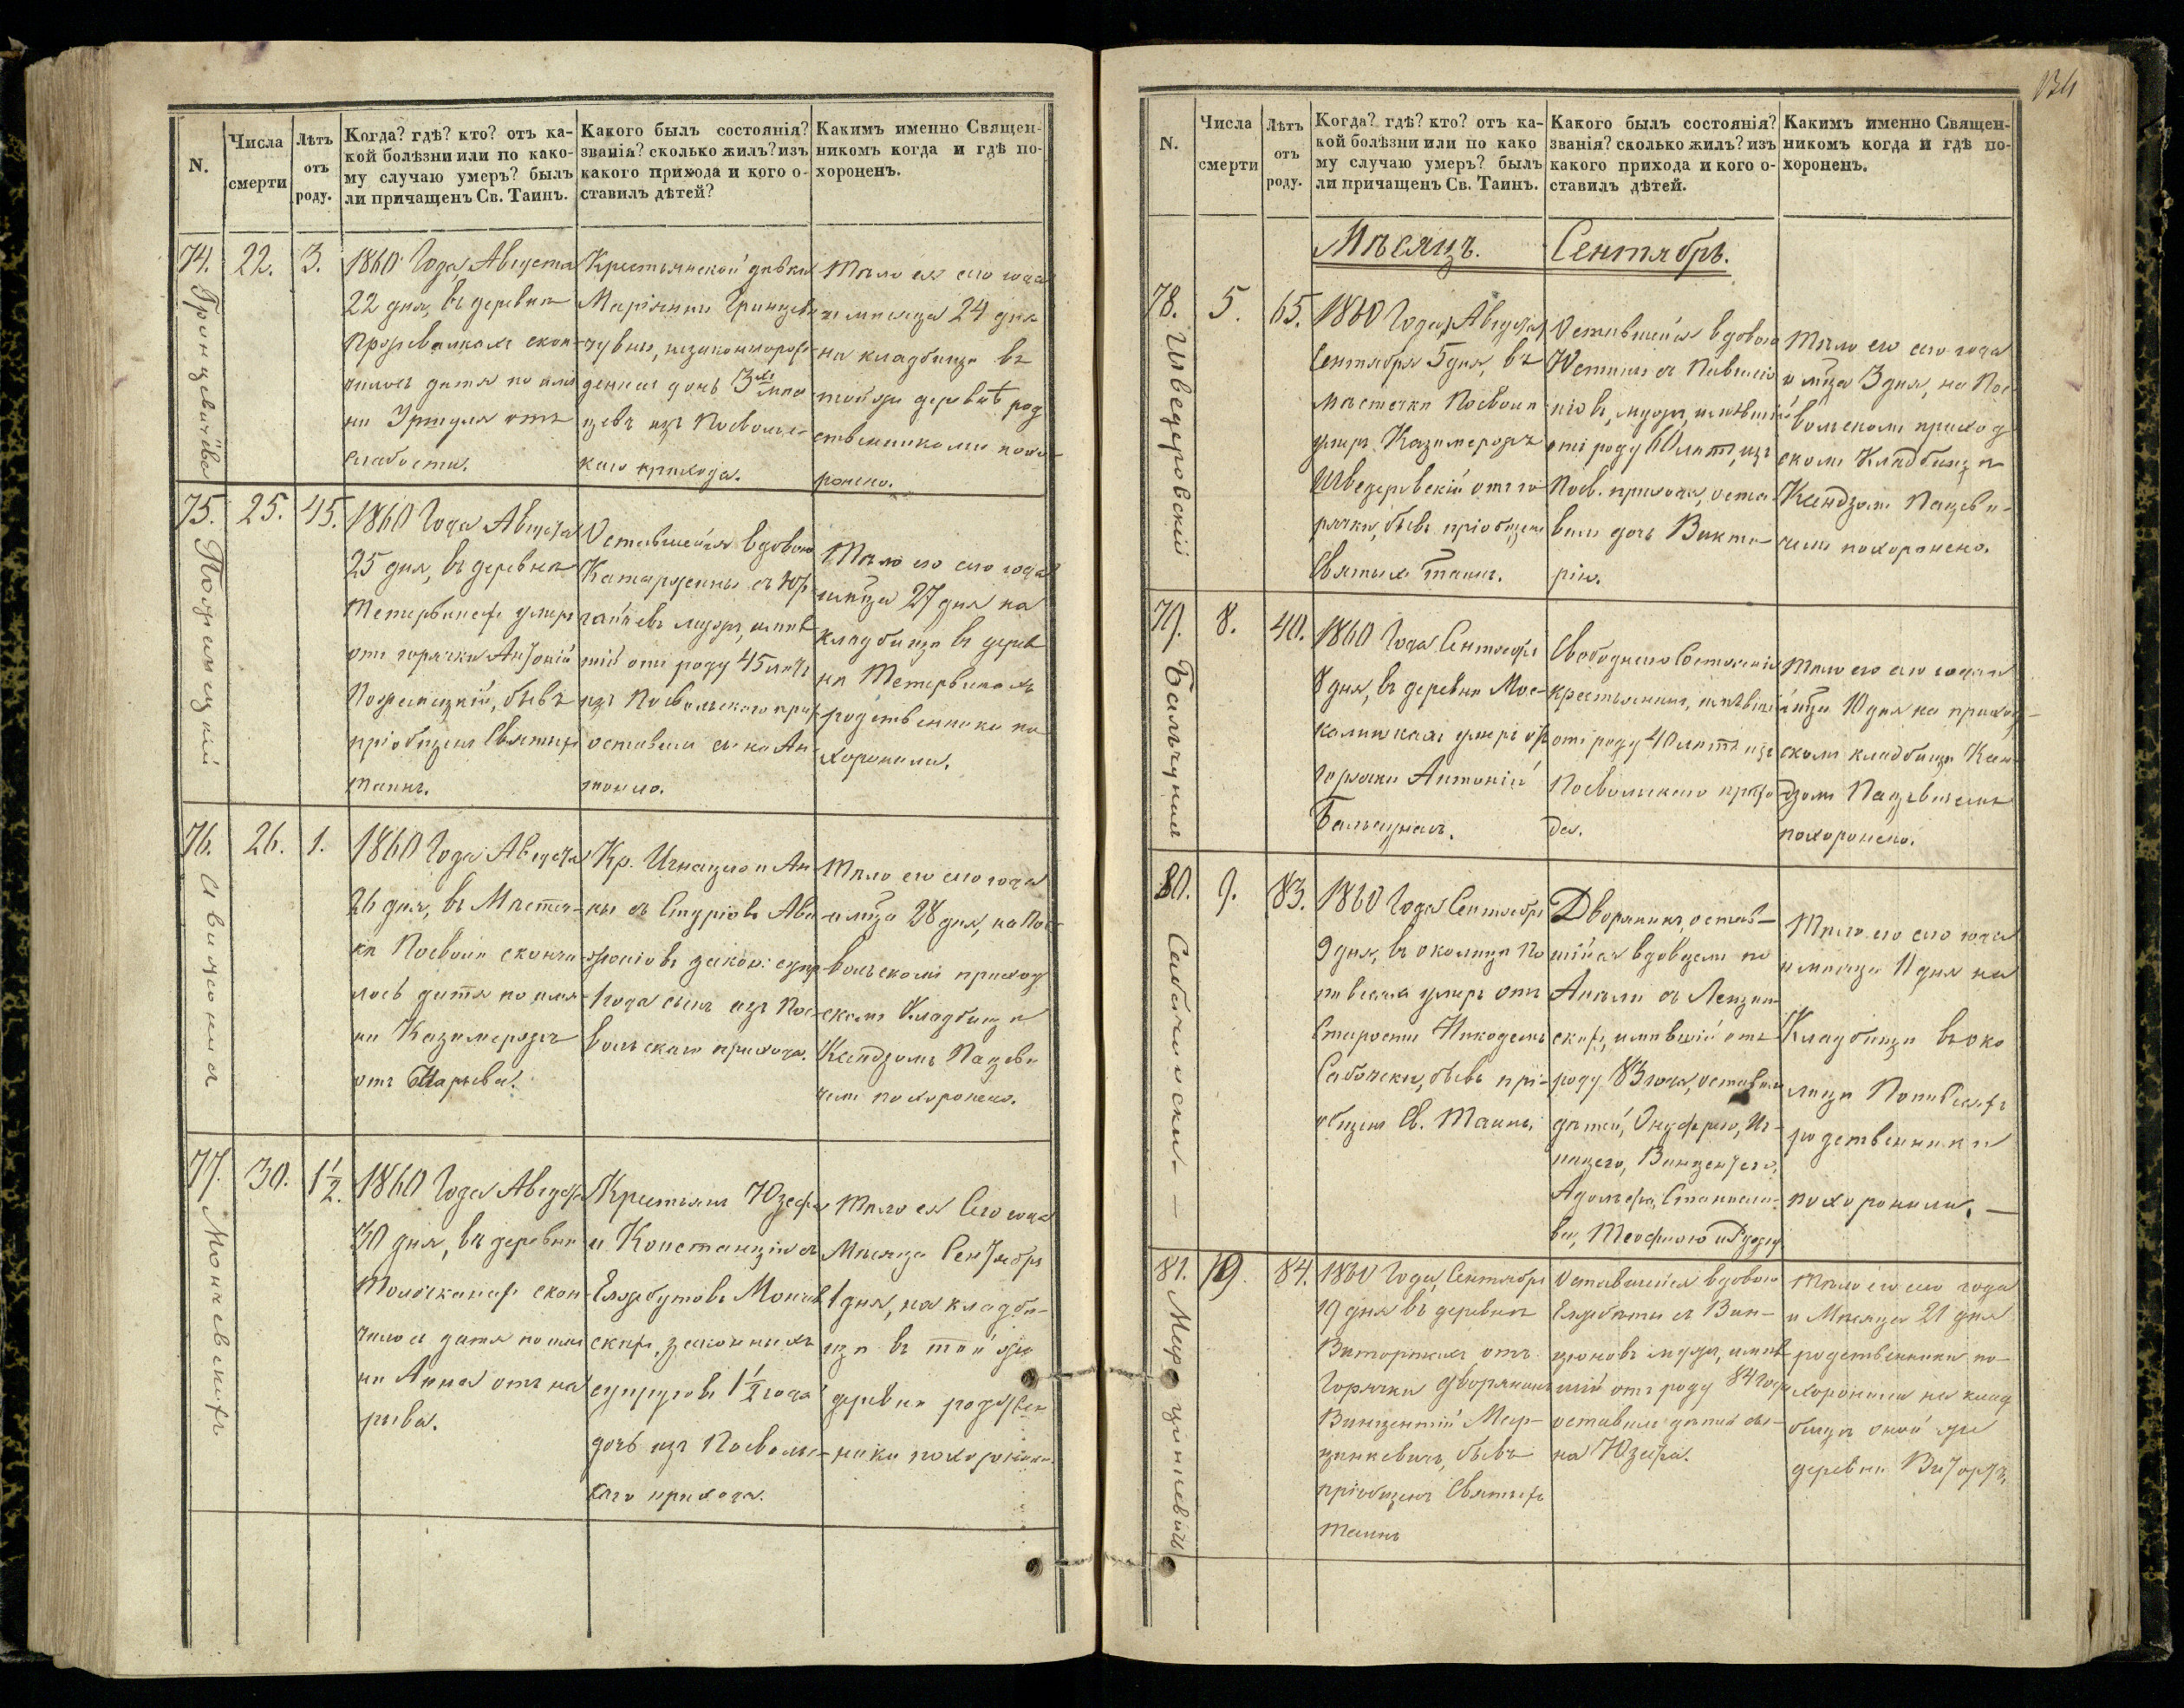 N.
Числа
смерти
Лѣтъ
отъ
роду.
Когда? гдѣ? кто? отъ ка-
кой болѣзни или по како-
му случаю умеръ? былъ
ли причащенъ Св. Таинъ.
Какого былъ состоянія?
званія? сколько жилъ? изъ
какого прихода и кого о-
ставилъ дѣтей?
Какимъ именно Священ-
никомъ когда и гдѣ по-
хороненъ.
74.
Гринцевичёва
22.
3.
1860 Года Августа
22 дня, въ деревнѣ
скон-
чилось дитя по име
ни Уршуля отъ
слабости.
Крестьянской дѣвки
Маріянны Гринцеви
чувны, незаконнорож-
денная дочь 3хъ мѣся
цевъ изъ Посвольс-
каго прихода.
Тѣло ея сего года
и мѣсяца 24 дня
на кладбищѣ въ
той же деревнѣ род
ственниками похо-
ронено.
75.
Пожемецкій
25.
45.
1860 Года Августа
25 дня, въ деревнѣ
Тетервинахъ умеръ
отъ горячки Антоній
Пожемецкій, бывъ
пріобщенъ Святыхъ
Таинъ.
Оставшейся вдовою
Катаржины съ
мужъ, имѣв
шій отъ роду 45 лѣтъ
изъ Посвольскаго прих.
оставилъ сына Ан-
тонія.
Тѣло его сего года
и мѣца 27 дня на
кладбищѣ въ дерев
нѣ Тетервинахъ
родственники по
хоронили.
76.
Авижонис
26.
1.
1860 Года Августа
26 дня, въ Мѣстеч-
кѣ Посволѣ сконча
лось дитя по име-
ни Казимержъ
отъ Нарыва.
Кр. Игнацыя и Ан-
ны съ Стуріовъ Ави
жоніовъ закон: супр
1 года сынъ изъ Пос-
вольскаго прихода.
Тѣло его сего года
и мѣца 28 дня, на Пос-
вольскомъ приход
скомъ Кладбищѣ
Ксендзомъ Пацеви
чемъ похоронено.
77.
Мончевскихъ
30.
1½.
1860 Года Августа
30 дня, въ деревнѣ
Толочканахъ скон
чилось дитя по име
ни Анна отъ на
рыва.
Крестьянъ Юзефа
и Констанціи съ
Елжбутовъ Мончев
скихъ, законныхъ
супруговъ 1½ года
дочь изъ Посвольс-
каго прихода.
Тѣло ея Сего года
Мѣсяца Сентября
1 дня, на кладби-
щѣ въ той же
деревнѣ родствен
ники похоронили.
134
N.
Числа
смерти
Лѣтъ
отъ
роду.
Когда? гдѣ? кто? отъ ка-
кой болѣзни или по како
му случаю умеръ? былъ
ли причащенъ Св. Таинъ.
Какого былъ состоянія?
званія? сколько жилъ? изъ
какого прихода и кого о-
ставилъ дѣтей.
Какимъ именно Священ-
никомъ когда и гдѣ по-
хороненъ.
Мѣсяцъ.
Сентябрь.
78.
Шведеровскій
5.
65.
1860 Года, Августа
Сентября 5 дня, въ
мѣстечкѣ Посволѣ
умеръ Казимержъ
Шведеровскій отъ го
рячки, бывъ пріобщенъ
Святыхъ Таинъ.
Оставшейся вдовою
Юстины съ
мужъ, имѣвшій
отъ роду 60 лѣтъ, изъ
Посв. прихода, оста
вилъ дочь Викто-
рію.
Тѣло его сего года
и мѣца 3 дня, на Пос
вольскомъ приход
скомъ Кладбищѣ
Ксендзомъ Пацеви-
чемъ похоронено.
79.
Бальчунас
8.
40.
1860 Года Сентября
8 дня, въ деревнѣ Мос-
калишкахъ умеръ отъ
горячки Антоній
Бальчунас.
Свободнаго Состоянія
крестьянинъ, имѣвшій
отъ роду 40 лѣтъ изъ
Посвольскаго прихо
да.
Тѣло его сего года и
мѣца 10 дня на приход-
скомъ кладбищѣ Ксен
дзомъ Пацевичемъ
похоронено.
80.
9.
83.
1860 Года Сентября
9 дня, въ околицѣ По
умеръ отъ
Старости Никодемъ
бывъ прі-
общенъ Св. Таинъ.
Дворянинъ, остав-
шійся вдовцемъ по
Анели съ
имѣвшій отъ
роду 83 года, оставилъ
дѣтей, Онуфрыо, Иг-
нацего, Винцентего,
Адольфа, Станисла-
ва, Теофилю и
Тѣло его сего года
и мѣсяца 11 дня на
Кладбищѣ въ око
лицѣ
родственники
похоронили. —
81.
Марцинкевичъ
19
84.
1860 Года, Сентября
19 дня въ деревнѣ
отъ
Горячки дворянинъ
Винцентій Мар-
цинкевичъ, бывъ
пріобщенъ Святыхъ
Таинъ
Оставшейся вдовою
Елжбеты съ Вин-
цюновъ мужъ, имѣв
шій отъ роду 84 года
оставилъ дѣтей сы-
на Юзефа.
Тѣло его сего года
и Мѣсяца 21 дня
родственники по-
хоронили на клад
бищѣ оной же
деревни